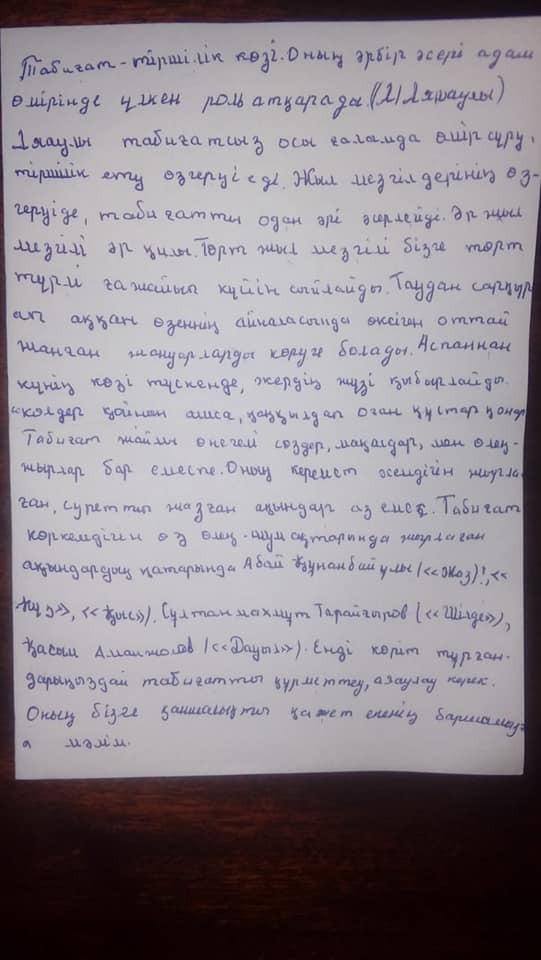 Табиғат - тіршілік көзі. Оның әрбір әсері адам
өмірінде үлкен роль атқарады.
табиғатсыз осы ғаламда өмір сүру,
тіршілік ету өзгеруі еді. Жыл мезгілдерінің өз-
геруіде, табиғатты одан әрі әсерлейді. Әр жыл
мезгілі әр қилы. Төрт жыл мезгілі бізге төрт
түрлі ғажайып күйін сыйлайды. Таудан сарқыр
ап аққан өзеннің айналасында өксіген оттай
жанған жануарларды көруге болады. Аспаннан
күнің көзі түскенде, жердің жүзі қыбырлайды.
«көлдер қойнын ашса, қаңқылдап оған құстар қонар
Табиғат жайлы өнегелі сөздер, мақалдар, мен өлең-
жырлар бар емеспе. Оның керемет әсемдігін жырла-
ған, суретті жазған ақындар аз емес. Табиғат
көркемдігін өз өлең-шумақтарында жырлаған
ақындардың қатарында Абай Құнанбайұлы (<<Жаз)!,<<
Күз>>, <<Қыс>>). Сұлтанмахмұт Торайғыров (<<Шілде>>),
Қасым Аманжолов (<<Дауыл>>). Енді көріп тұрған-
дарыңыздай табиғатты құрметтеу, аялау керек.
Оның бізге қаншалықты қажет екенің баршамызғ
а мәлім.